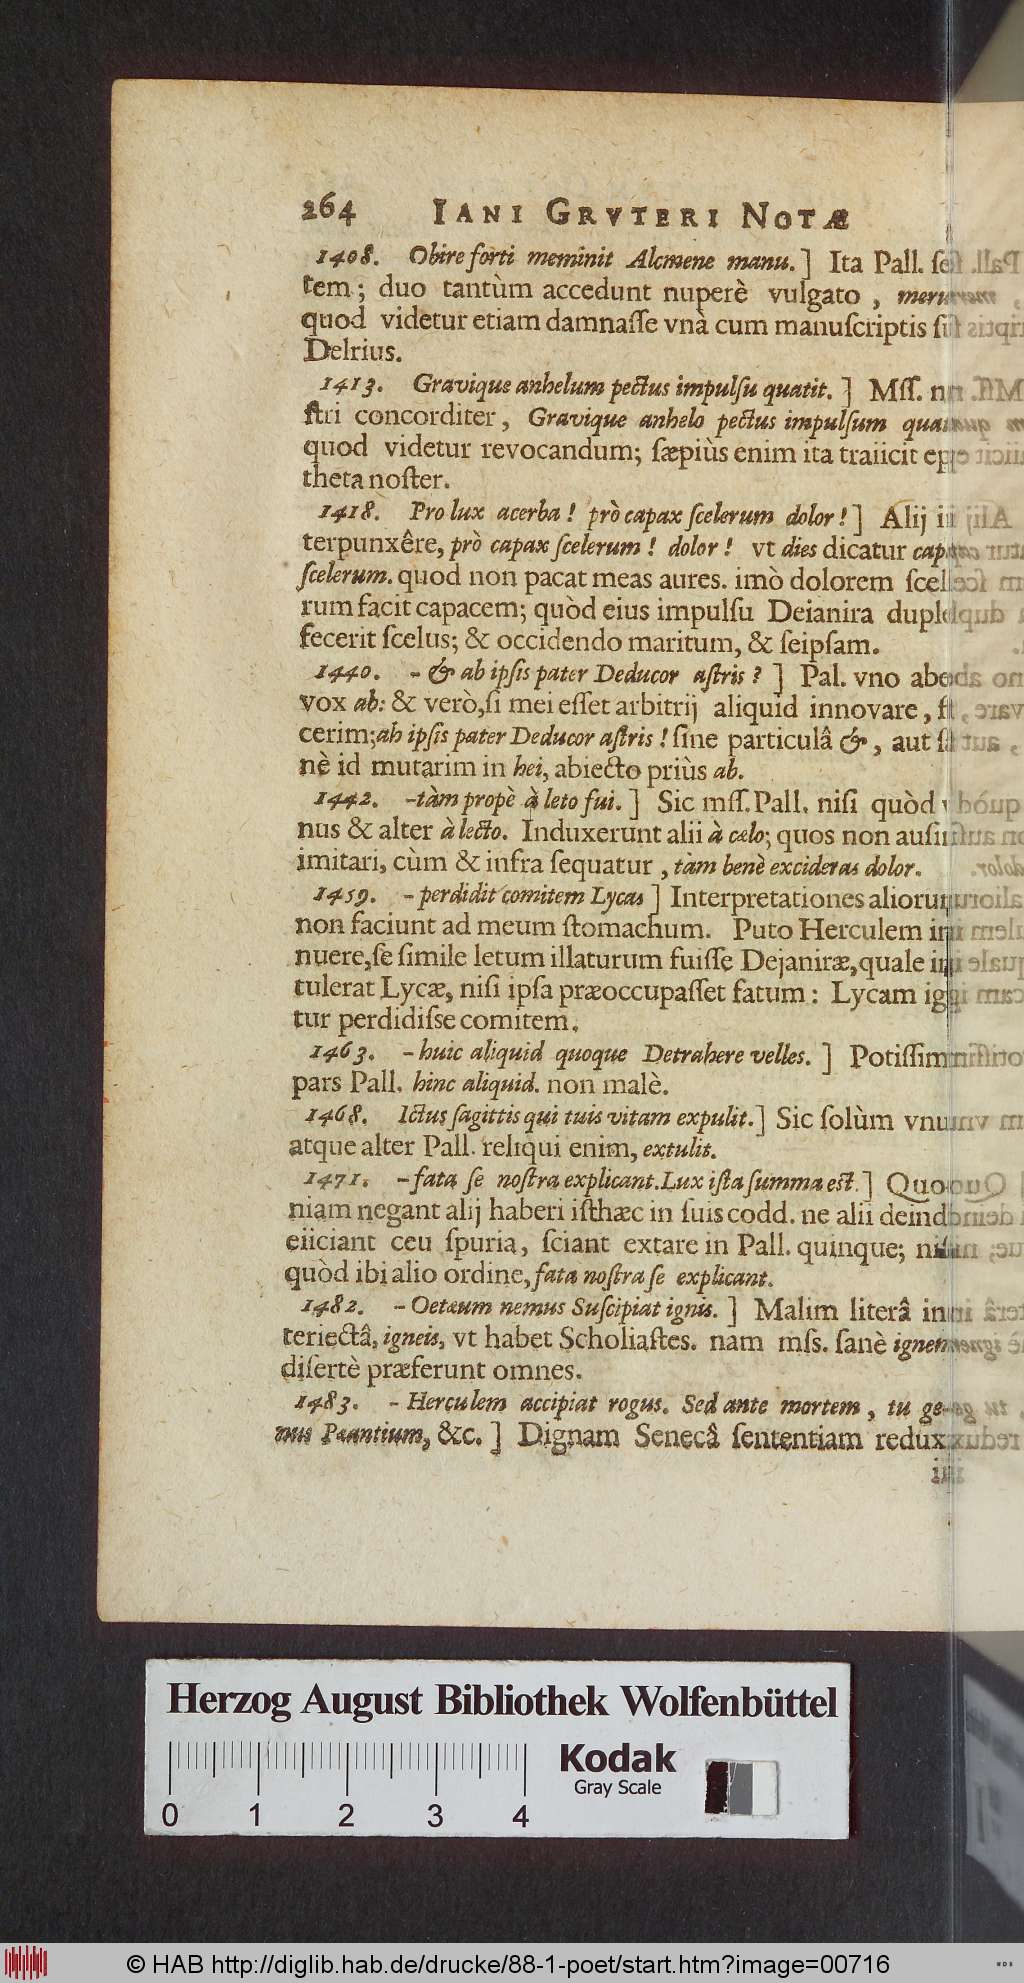 264 IANI GRVTERI NOTÆ
1408. Obire forti meminit Alcmene manu.] Ita Pall. ſe
tem; duo tantùm accedunt nuperè vulgato,
quod videtur etiam damnaſſe vnà cum manuſcriptis
Delrius.
1413. Gravique anhelum pectus impulſu quatit.] Mſſ. n
ſtri concorditer, Gravique anhelo pectus impulſum
quod videtur revocandum; ſæpiùs enim ita traiicit
theta noſter.
1418. Pro lux acerba! prò capax ſcelerum dolor!] Alij
terpunxêre, prò capax ſcelerum! dolor! vt dies dicatur
ſcelerum. quod non pacat meas aures. imò dolorem
rum facit capacem; quòd eius impulſu Deianira
fecerit ſcelus; & occidendo maritum, & ſeipſam.
1440. - & ab ipſis pater Deducor aſtris?] Pal. vno
vox ab: & verò, ſi mei eſſet arbitrij aliquid innovare,
cerim; ab ipſis pater Deducor aſtris! ſine particulâ &, aut
nè id mutarim in hei, abiecto priùs ab.
1442. -tàm propè à leto fui.] Sic mſſ. Pall. niſi quòd
nus & alter à lecto. Induxerunt alii à cælo; quos non
imitari, cùm & infra ſequatur, tàm benè excideras dolor.
1459. - perdidit comitem Lycas] Interpretationes
non faciunt ad meum ſtomachum. Puto Herculem
nuere, ſe ſimile letum illaturum fuiſſe Dejaniræ, quale
tulerat Lycæ, niſi ipſa præoccupaſſet fatum: Lycam
tur perdidiſse comitem.
1463. - huic aliquid quoque Detrahere velles.]
pars Pall. hinc aliquid. non malè.
1468. Ictus ſagittis qui tuis vitam expulit.] Sic ſolùm
atque alter Pall. reliqui enim, extulit.
1471. - fata ſe noſtra explicant. Lux iſta ſumma eſt.] Quo-
niam negant alij haberi iſthæc in ſuis codd. ne alii
eiiciant ceu ſpuria, ſciant extare in Pall. quinque;
quòd ibi alio ordine, fata noſtra ſe explicant.
1482. - Oetæum nemus Suſcipiat ignis.] Malim literâ
teriectâ, igneis, vt habet Scholiaſtes. nam mſs. ſanè
diſertè præferunt omnes.
1483. - Herculem accipiat rogus. Sed ante mortem, tu ge-
nus Pæantium, &c.] Dignam Senecâ ſententiam redux
Herzog August Bibliothek Wolfenbüttel
Kodak
Gray Scale
0 1 2 3 4
© HAB http://diglib.hab.de/drucke/88-1-poet/start.htm?image=00716